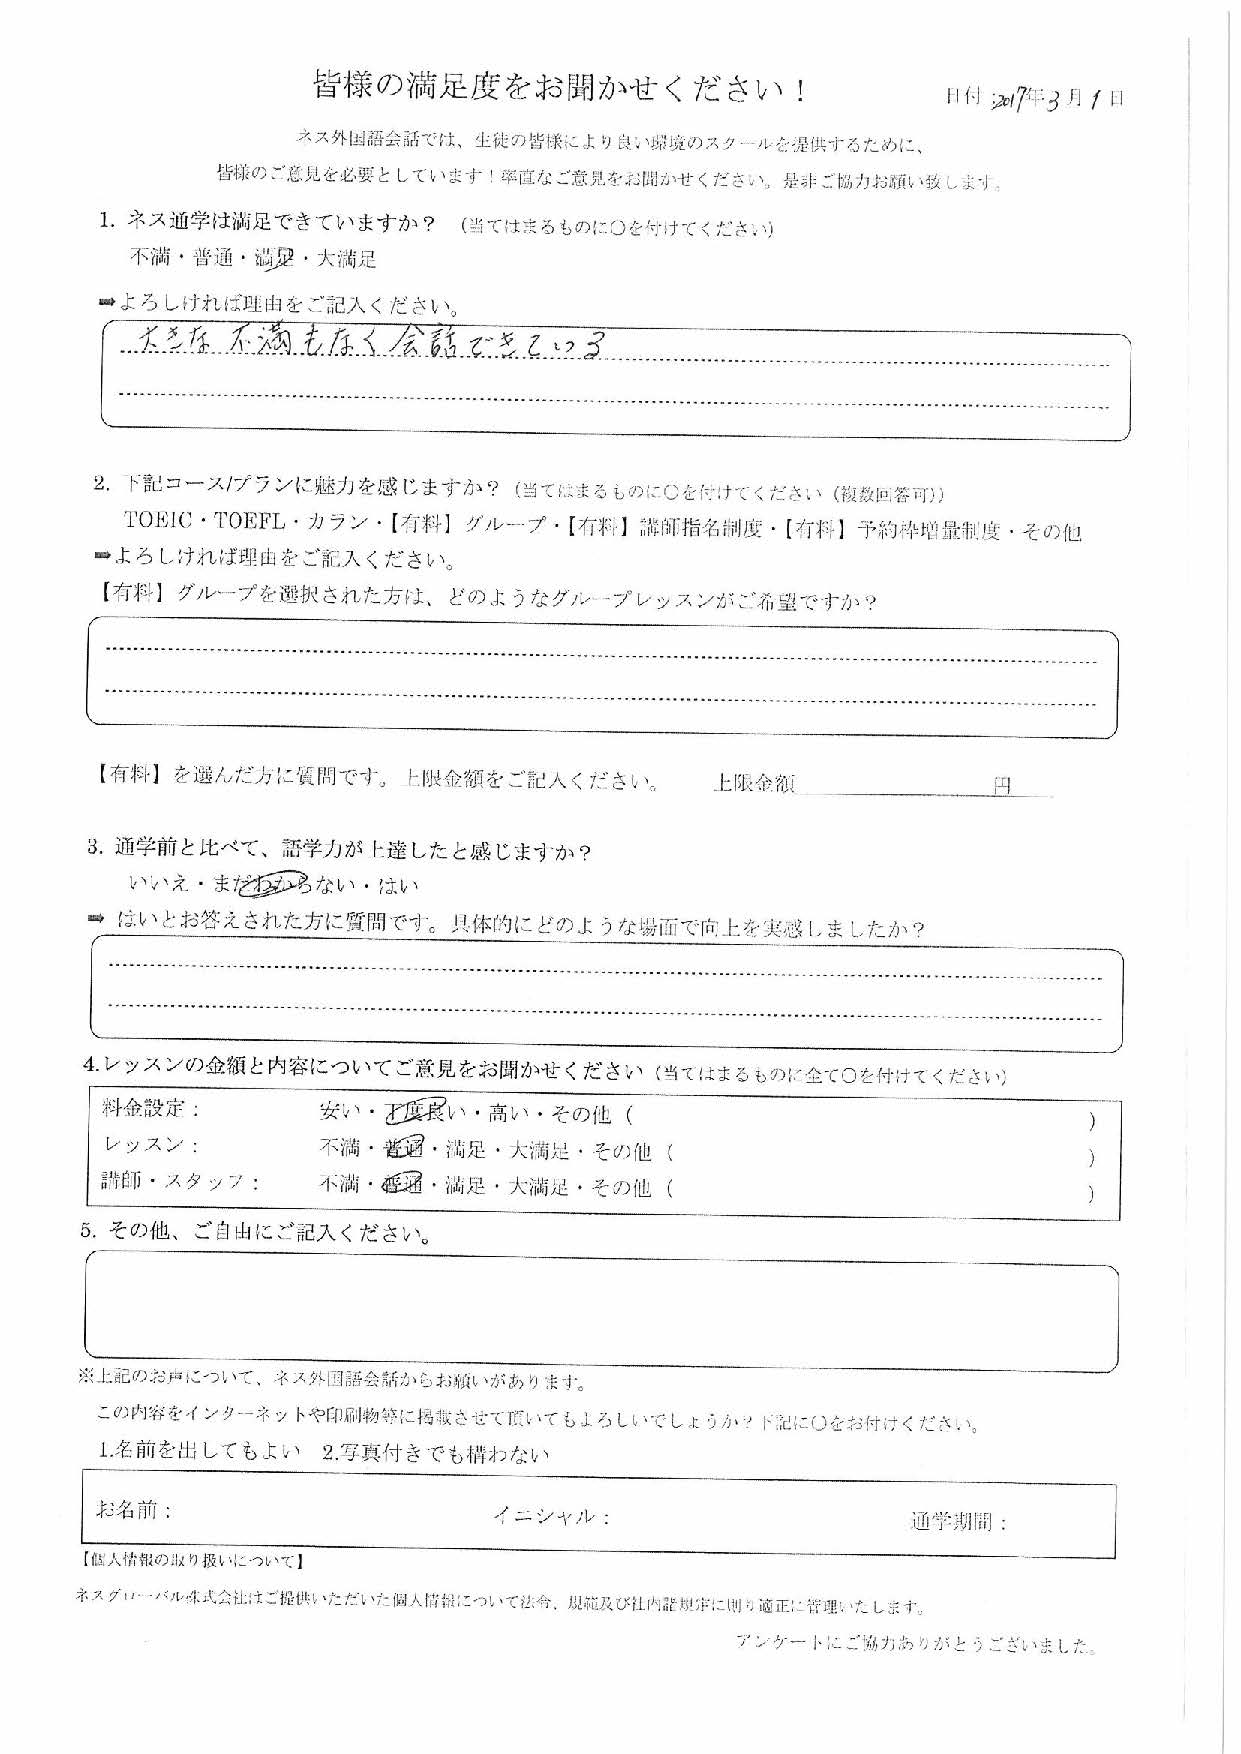 皆様の満足度をお聞かせください！
日付:2017年3月1日
ネス外国語会話では、生徒の皆様により良い環境のスクールを提供するために、
皆様のご意見を必要としています！率直なご意見をお聞かせください。是非ご協力お願い致します。
1. ネス通学は満足できていますか？ （当てはまるものに○を付けてください）
不満・普通・満足・大満足
➡よろしければ理由をご記入ください。
大きな不満もなく会話できている
2. 下記コース/プランに魅力を感じますか？（当てはまるものに○を付けてください（複数回答可））
TOEIC・TOEFL・カラン・【有料】グループ・【有料】講師指名制度・【有料】予約枠増量制度・その他
➡よろしければ理由をご記入ください。
【有料】グループを選択された方は、どのようなグループレッスンがご希望ですか？
【有料】を選んだ方に質問です。上限金額をご記入ください。 上限金額 円
3. 通学前と比べて、語学力が上達したと感じますか？
いいえ・まだわからない・はい
➡ はいとお答えされた方に質問です。具体的にどのような場面で向上を実感しましたか？
4.レッスンの金額と内容についてご意見をお聞かせください（当てはまるものに全て○を付けてください）
料金設定： 安い・丁度良い・高い・その他（ ）
レッスン： 不満・普通・満足・大満足・その他（ ）
講師・スタッフ： 不満・普通・満足・大満足・その他（ ）
5. その他、ご自由にご記入ください。
※上記のお声について、ネス外国語会話からお願いがあります。
この内容をインターネットや印刷物等に掲載させて頂いてもよろしいでしょうか？下記に○をお付けください。
1.名前を出してもよい 2.写真付きでも構わない
お名前： イニシャル： 通学期間：
【個人情報の取り扱いについて】
ネスグローバル株式会社はご提供いただいた個人情報について法令、規範及び社内諸規定に則り適正に管理いたします。
アンケートにご協力ありがとうございました。